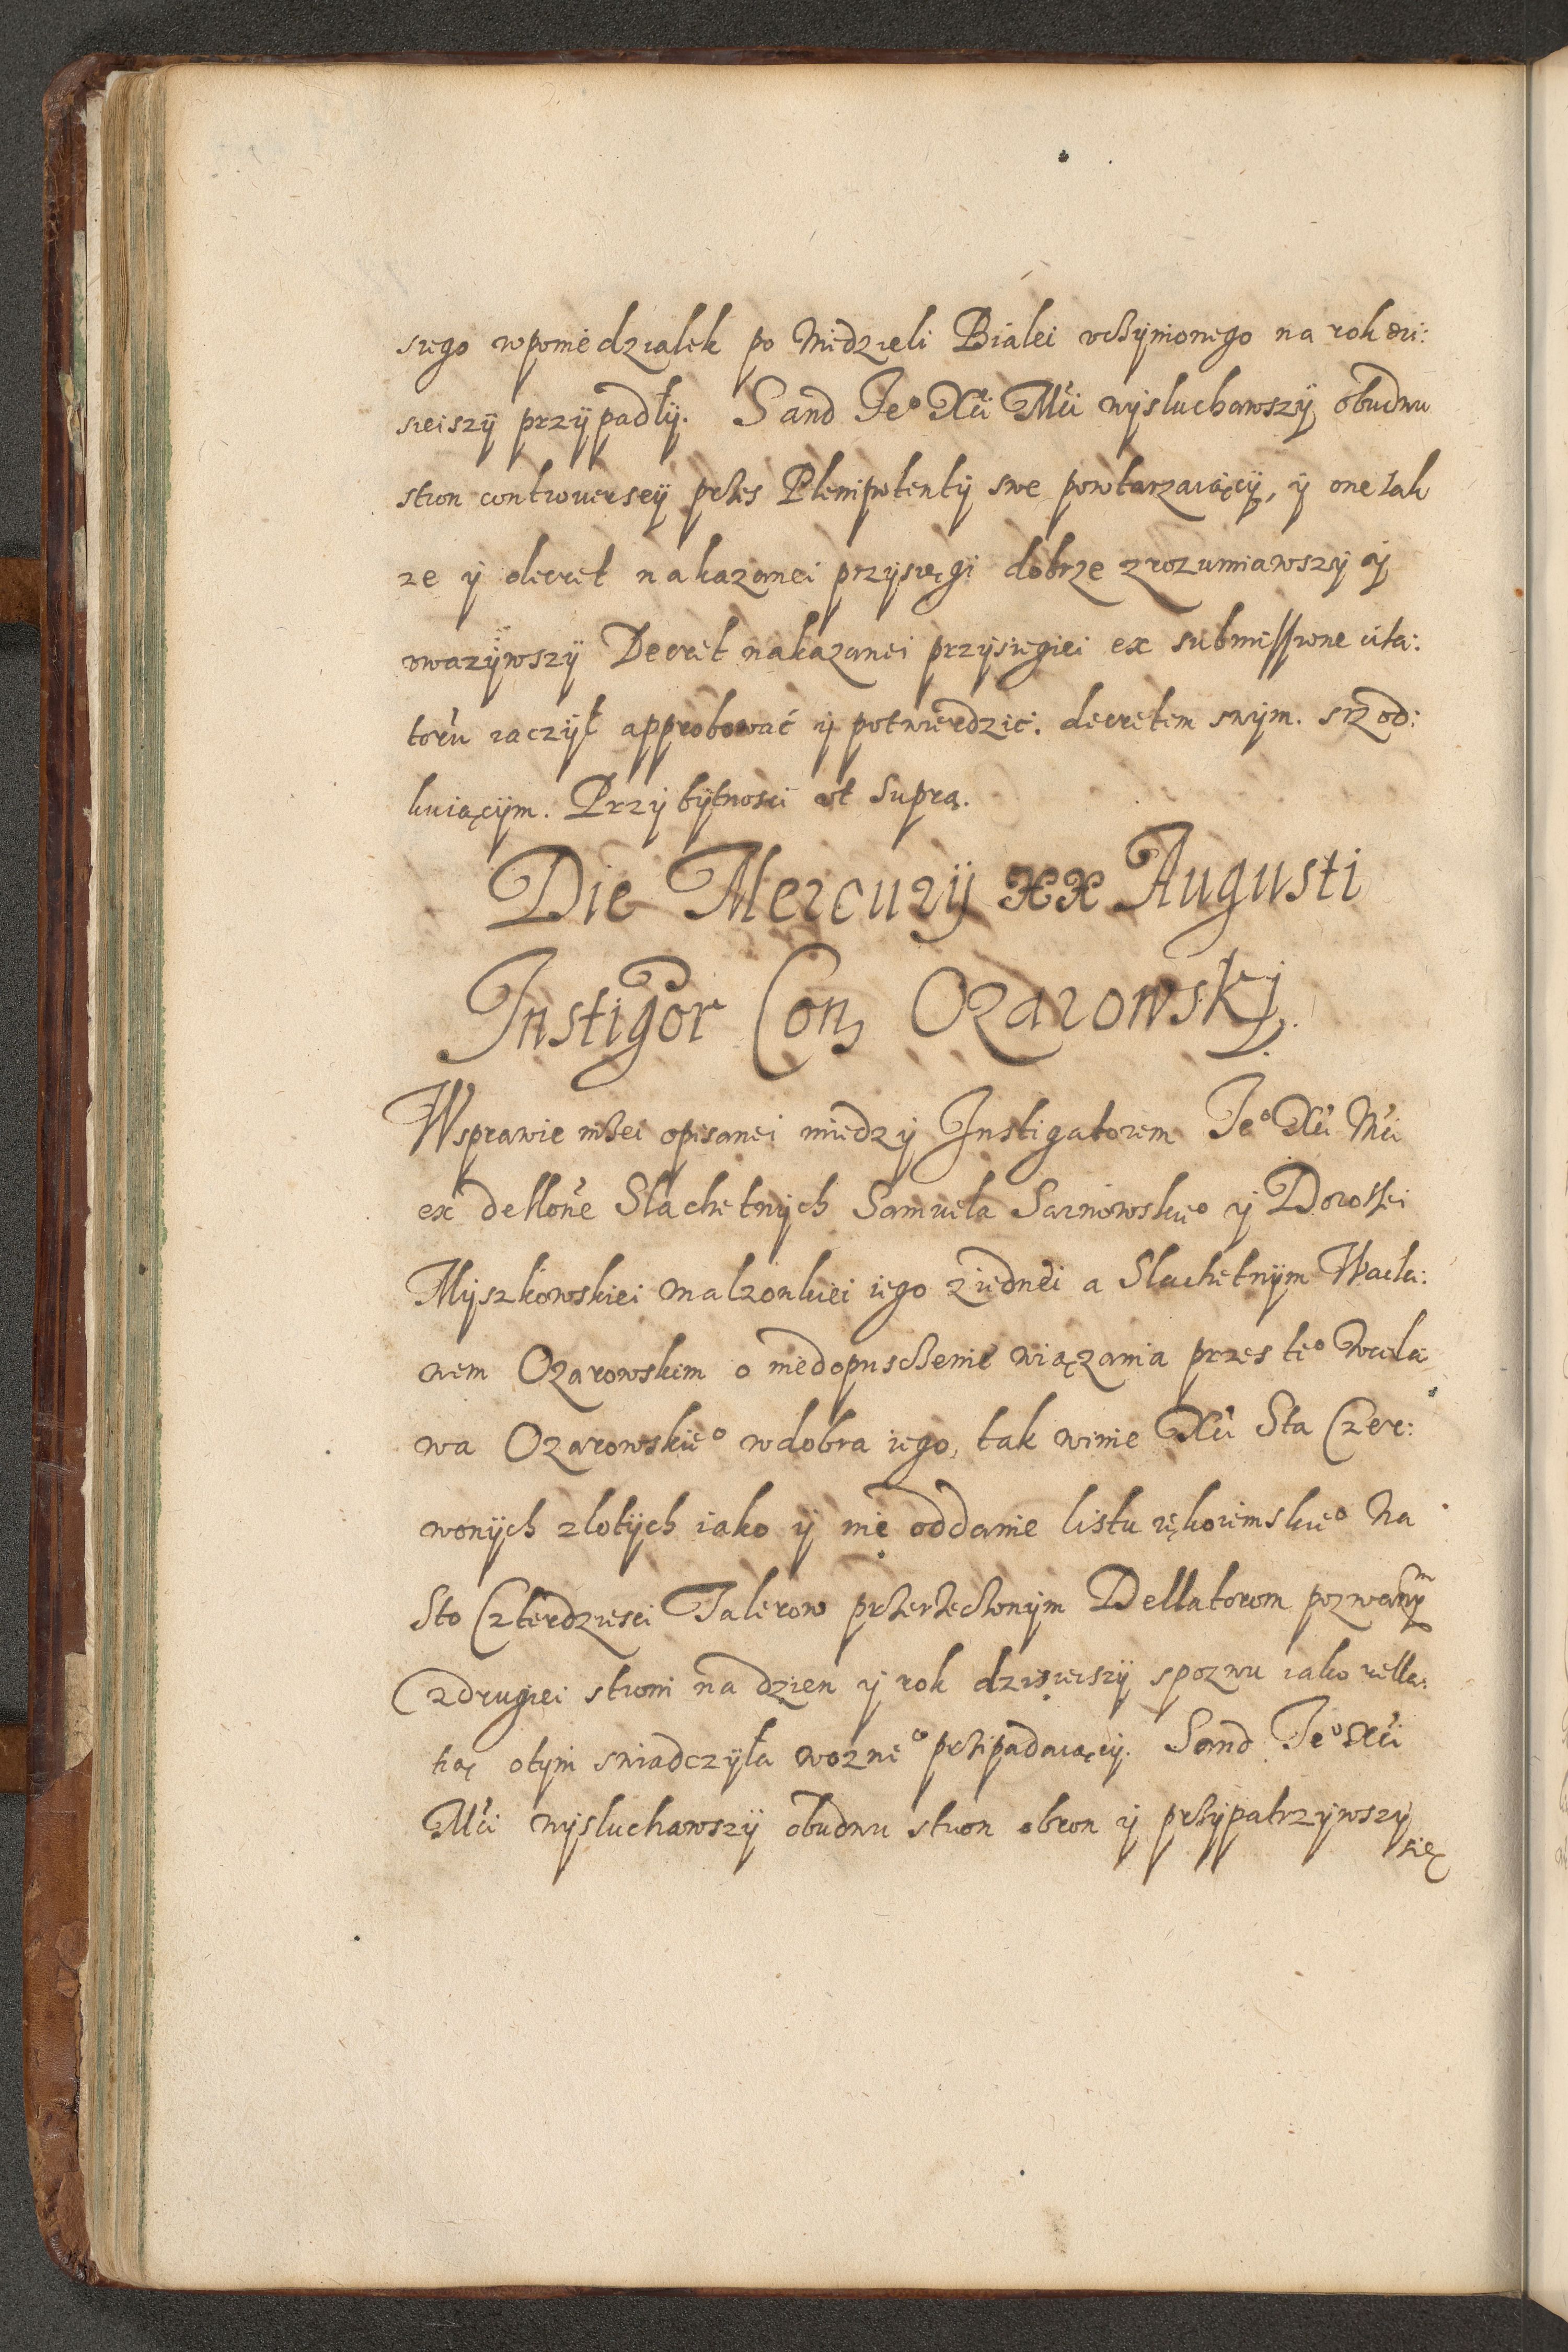 siego wponiedzialek po Niedzieli Bialei uczÿnionego na rok dzi:
sieiszÿ przÿpadłÿ. Sand Je° Xci Mci wÿsluchawszÿ obudwu
stron controverseÿ przes Plenipotentÿ swe powtarzaiącÿ, ÿ one tak
ze ÿ decret nakazanei przÿsięgi dobrze zrozumiawszÿ ÿ
uwazÿwszÿ Decret nakazanei przÿsięgiei ex submissione cita:
toru raczÿł approbować ÿ potwierdzic. decretem swÿm. srzod:
kuiącÿm. Przÿ bÿtnosci ut supra.
Die Mercurÿ xx Augusti
Instigor Con, Ozarowskj.
Wsprawie nizei opisanei miedzÿ Instigatorem Je° Xci Mci
ex dellone Slachetnÿch Samuela Sarnowskie° ÿ Dorothei
Mÿszkowskiei malzonkiei iego ziednei a Slachetnÿm Wacla:
wem Ozarowskim o niedopusczenie wiązania przes te° Wacla
wa Ozarowskie° wdobra iego, tak winie Xci Sta Czer:
wonÿch zlotÿch iako ÿ nie oddanie listu rękoiemskie° Na
Sto Czterdziesci Talerow przerzeczonÿm Dellatorom pozwanÿm
Zdrugiei stroni na dzien ÿ rok dzisieiszÿ spozwu iako rella:
tią otÿm swiadczÿła wozne° przipadaiącÿ. Sand Je° Xci
Mci wÿsluchawszÿ obudwu stron obron ÿ przÿpatrzÿwszÿ
się